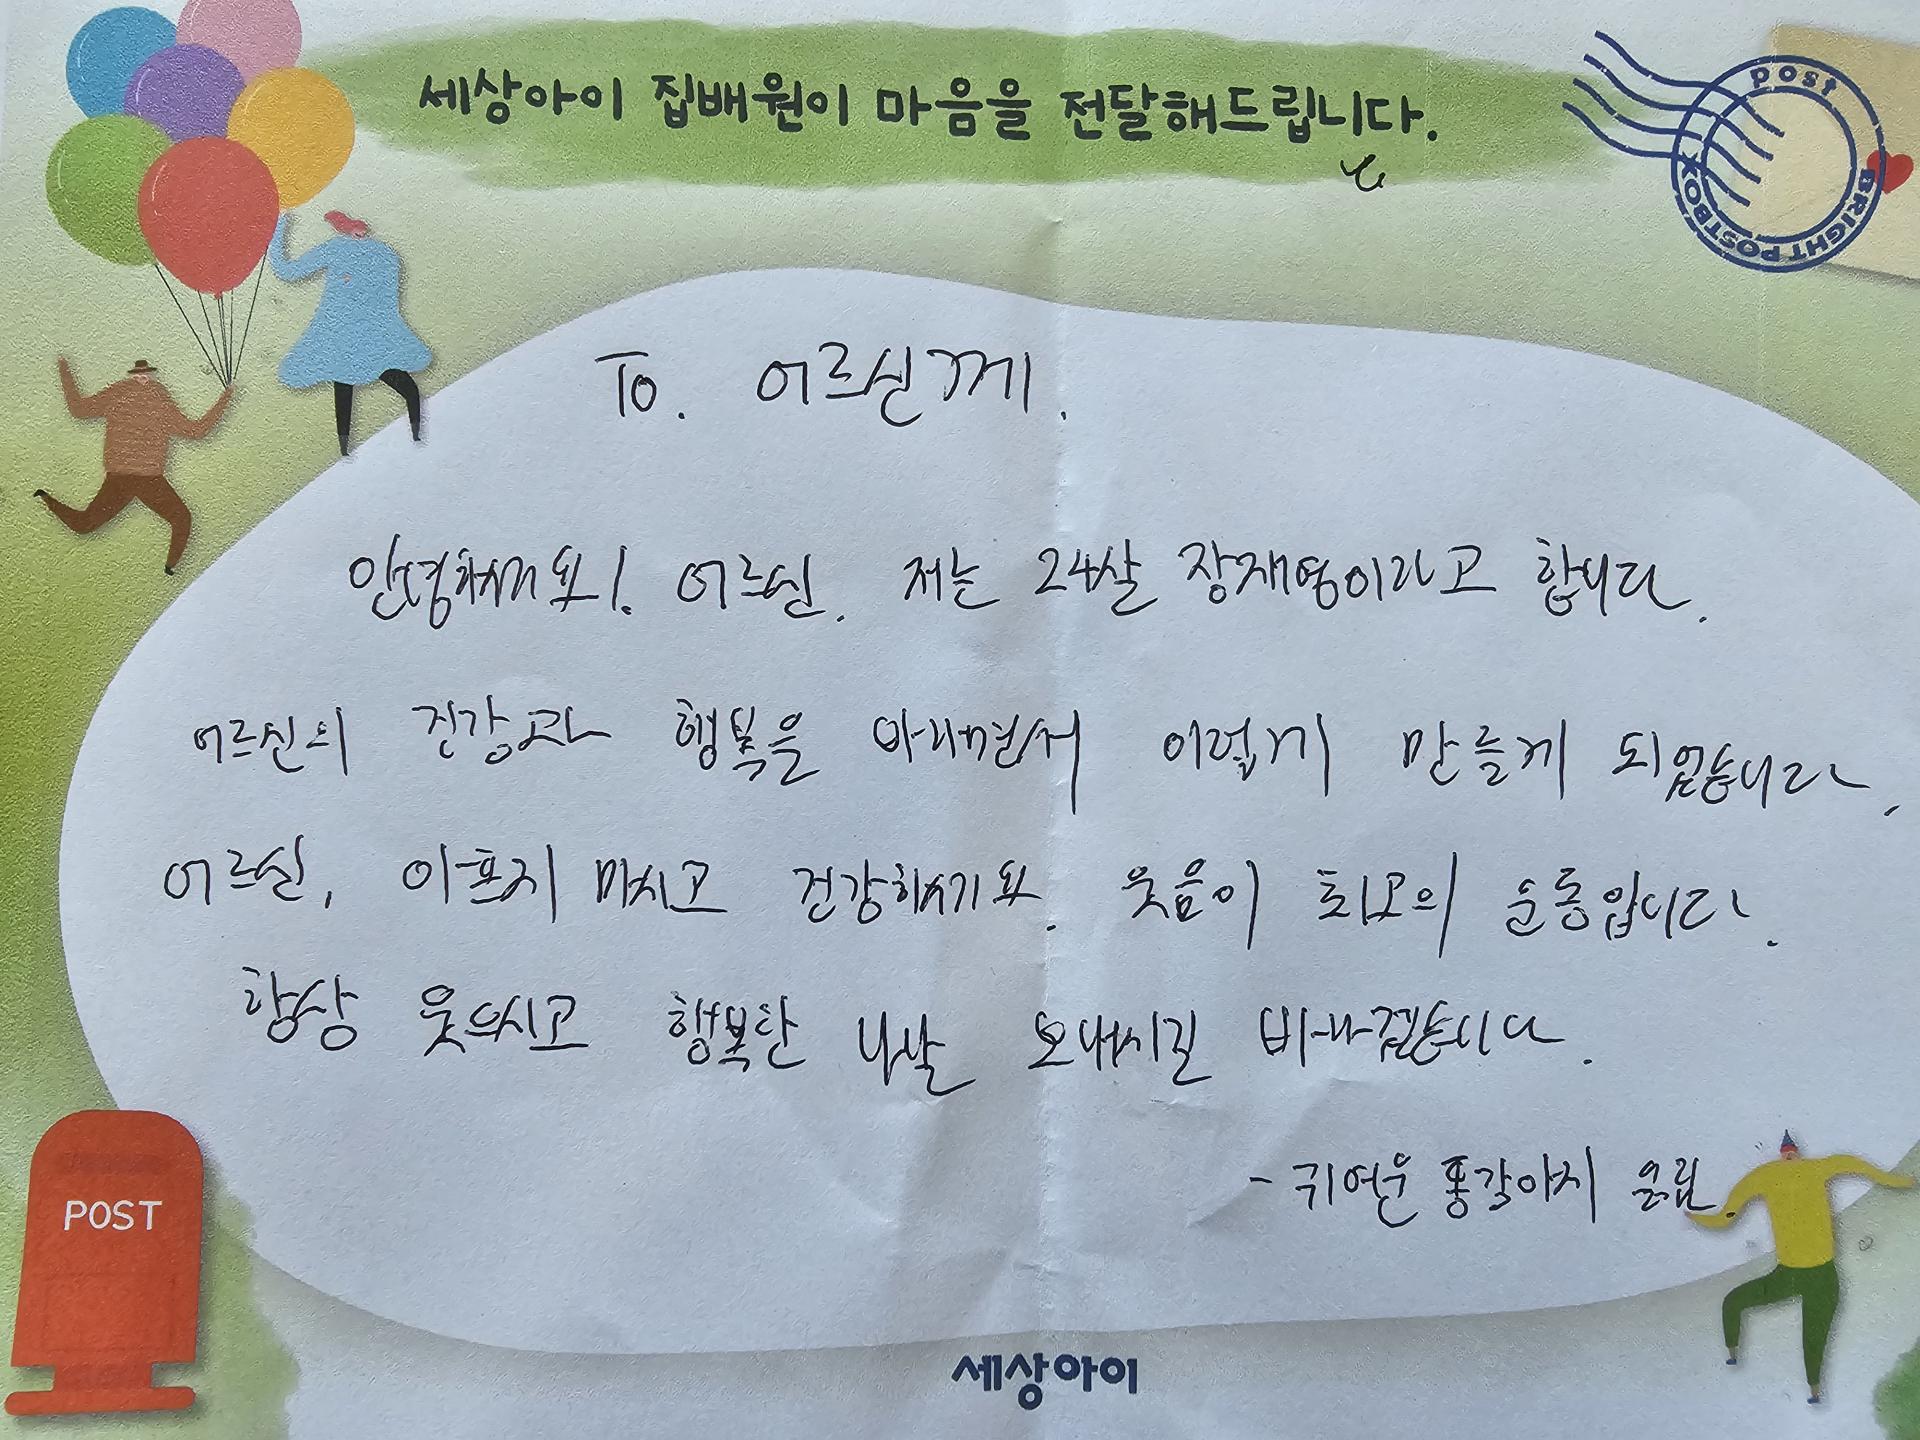 세상아이 집배원이 마음을 전달해드립니다.
post
BRIGHT POSTBOX
To. 어르신께.
안녕하세요! 어르신. 저는 24살 장재영이라고 합니다.
어르신의 건강과 행복을 바라면서 이렇게 만들게 되었습니다.
어르신, 아프지 마시고 건강하세요. 웃음이 최고의 운동입니다.
항상 웃으시고 행복한 나날 보내시길 바라겠습니다.
- 귀여운 똥강아지 올림
POST
세상아이